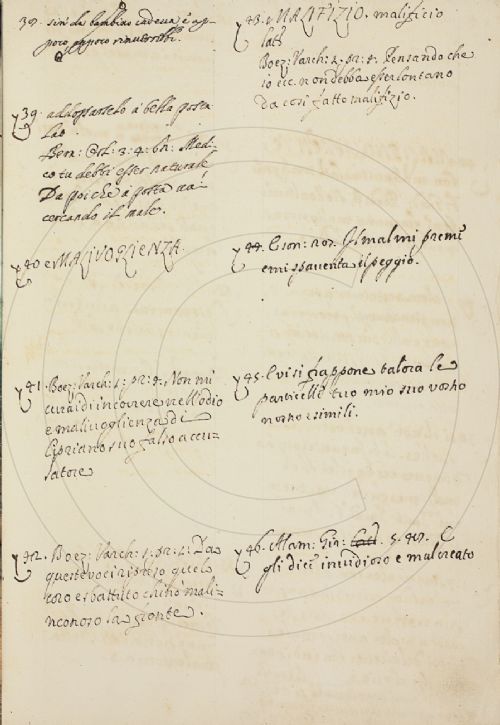 39. addossarselo a bella posta
Lat.
Bern: Orl: 3: 4: 61: Medi=
co tu debbi esser naturale
Da poi che a posta vai
cercando il male.
40 e MALIVOLIENZA.
41. Boez: Varch: 1: pr: 4. Non mi
curai di incorrere nell'odio
e malivoglienza di
Cipriano suo falso accu=
satore
42. Boez: Varch: 1: pr: 1: Da
queste voci ripreso quel
coro e sbattuto chinò mali=
nconoso la fronte.
43. MALIFIZIO. malificio
lat.
Boez: Varch: 1: pr: 4. Pensando che
io ecc. non debba esser lontano
da così fatto malifizio.
44. E son: 207. Il mal mi preme
e mi spaventa il peggio.
45. E vi si frappone talora le
particelle tuo mio suo vostro
nostro e simili.
46. Alam: Gir: 5.
gli dice invidioso e malcreato